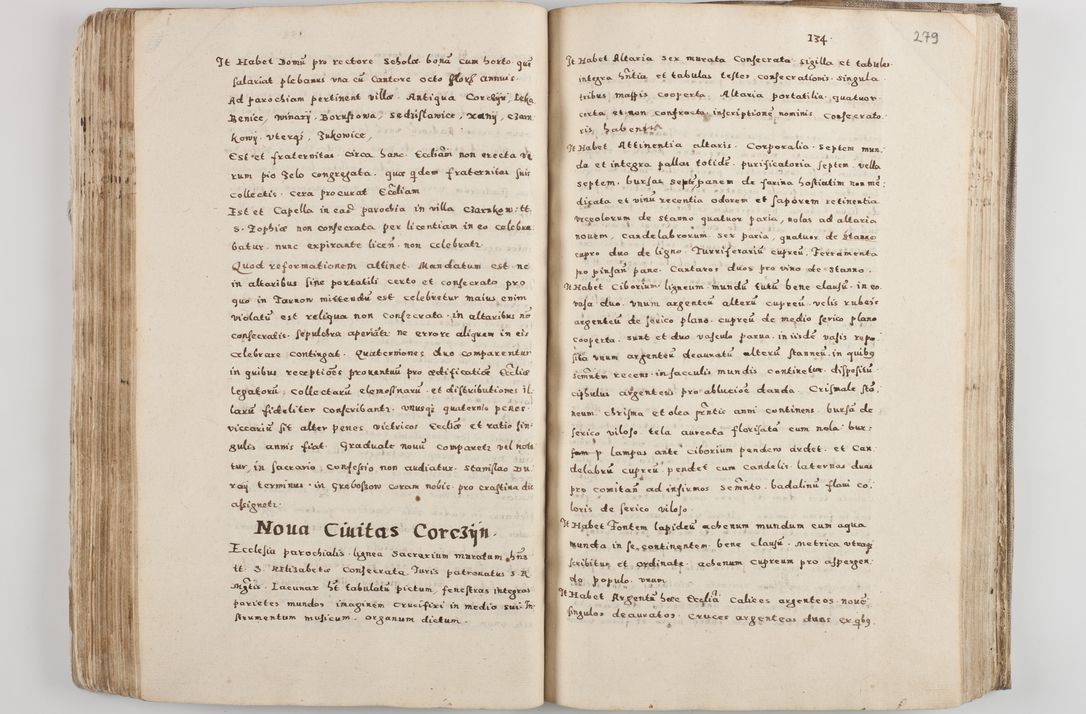 It Habet Domū pro rectore Scholæ bonā cum horto quē
salariat plebanus vna cū Cantore octo flor annuis.
Ad parochiam pertinent villæ. Antiqua Corczijn Leka
Benice, Winarij. Boruszowa, Sedzislawice, xanij, czarn
kowij. vterqȝ, Zukowice,
Est et fraternitas circa hanc Eccliam non erecta ve
rum pio Zelo congregata. quæ qdom fraternitas suis
collectis. cera procurat Eccliam
Est et Capella in eadē parochia in villa Czarnkow: tt.
S. Sophiæ non consecrata per licentiam in eo celebra
batur. nunc expirante licen. non celebratr.
Quod reformationem attinet. Mandatum est. ne
in altaribus sine portatili certo et consecrato pro
quo in Tarnow mittendū est celebretur maius enim
violatū est reliqua non consecrata. in altaribus nō
consecratis. sepulchra aperiātr ne errore aliquem in eis
celebrare contingat. Quaterniones duo comparentur
in quibus receptiões prouentuū pro ædificatiõe Eccliæ
legatorū, collectarū elemosinarū et distributiones il:
larū fideliter conscribantr. vnusqȝ quaternio penes.
viccariū sit alter penes victricos Eccliæ et ratio sin:
gulis annis fiat. Graduale nouū comparetr vel note
tur, in sacrario, Confessio non audiatur. Stanislao Du
raij terminus. in Greboszow coram nobis. pro crastina die
assignatr.
Noua Ciuitas Corczijn.
Ecclesia parochialis. lignea Sacrarium muratum hns
tt. S. Aelisabetæ Consecrata Iuris patronatus S. R.
Mgtis. Lacunar ht tabulatū pictum, fenestras integras
parietes mundos imaginem Crucifixi in medio sui. In
strumentum musicum. organum dictum.
134.
279
It Habet Altaria sex murata Consecrata. sigilla et tabulas
integra hntia et tabulas testes consecrationis. singula
tribus mappis cooperta. Altaria portatilia. quatuor.
certa et non confracta. inscriptione nominis consecrato
ris, habentia
It Habet Attinentia altaris. Corporalia. Septem mun.
da et integra pallas totidē. purificatoria septem. vella
septem. bursas septē panem de farina hostiatim non me:
dicata et vinū recentia odorem et saporem retinentia
vrceolorum de stanno quatuor paria, nolas ad altaria
nouem, candelabrorum sex paria, quatuor de stanno
cupro duo de ligno. Turriferariū cupreū, Ferramenta
pro pinsan pane. Cantaros duos pro vino de stanno.
It Habet Ciborium ligneum mundū tutū bene clausū. in eo.
vasa duo. vnum argenteū alterū cupreū. velis rubeis
argenteū de serico plano. cupreū de medio serico plano
cooperta. sunt et duo vascula parua. in iisdē vasis repo
sita vnum argenteū deauratū alterū stanneū. in quibȝ
semntm recens. in sacculis mundis continetur. dispositū
ciphulus argenteus pro ablucioē danda. Crismale sta.
neum. chrisma et olea pntis anni continens. bursā de
serico viloso. tela aureata florisata cum nola. bur:
lampas ante ciborium pendens ardet. et Can
delabrū cupreū, pendet cum candelis. laternas duas
pro comitan ad infirmos semnto. badalinū flaui co.
loris de serico viloso
It Habet Fontem lapideū achenum mundum cum aqua
munda in se continentem bene clausū. metrica vtraqȝ
scribitur et ordinate. achenum cupreum pro aspergen:
do populo. vnum.
It Habet Argentū hæc Ecclia. Calices argenteos. nouē,
singulos deauratos. cruces argenteas duas ex qbȝ.